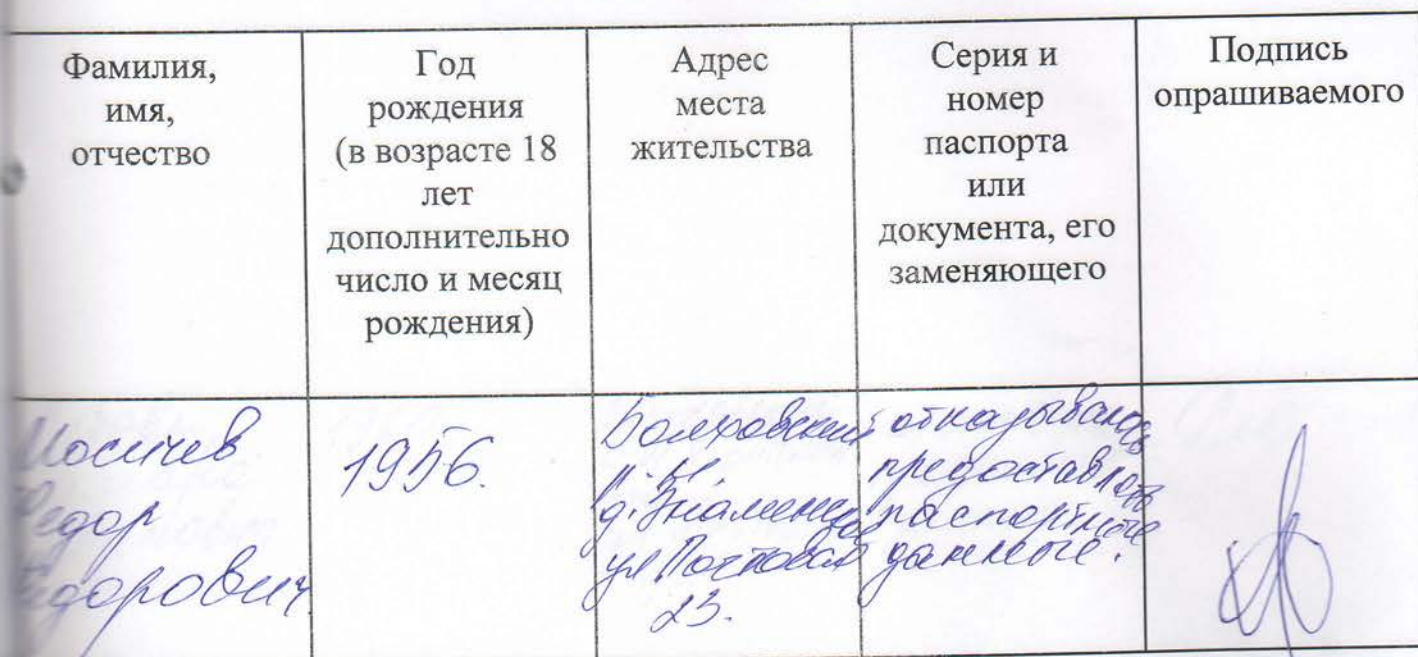 Фамилия,
имя,
отчество
Год
рождения
(в возрасте 18
лет
дополнительно
число и месяц
рождения)
Адрес
места
жительства
Серия и
номер
паспорта
или
документа, его
заменяющего
Подпись
опрашиваемого
Федор
Федорович
1956.
Болховский
р-н,
ул Почтовая
23.
отказываюсь
предоставлять
паспортные
данные.